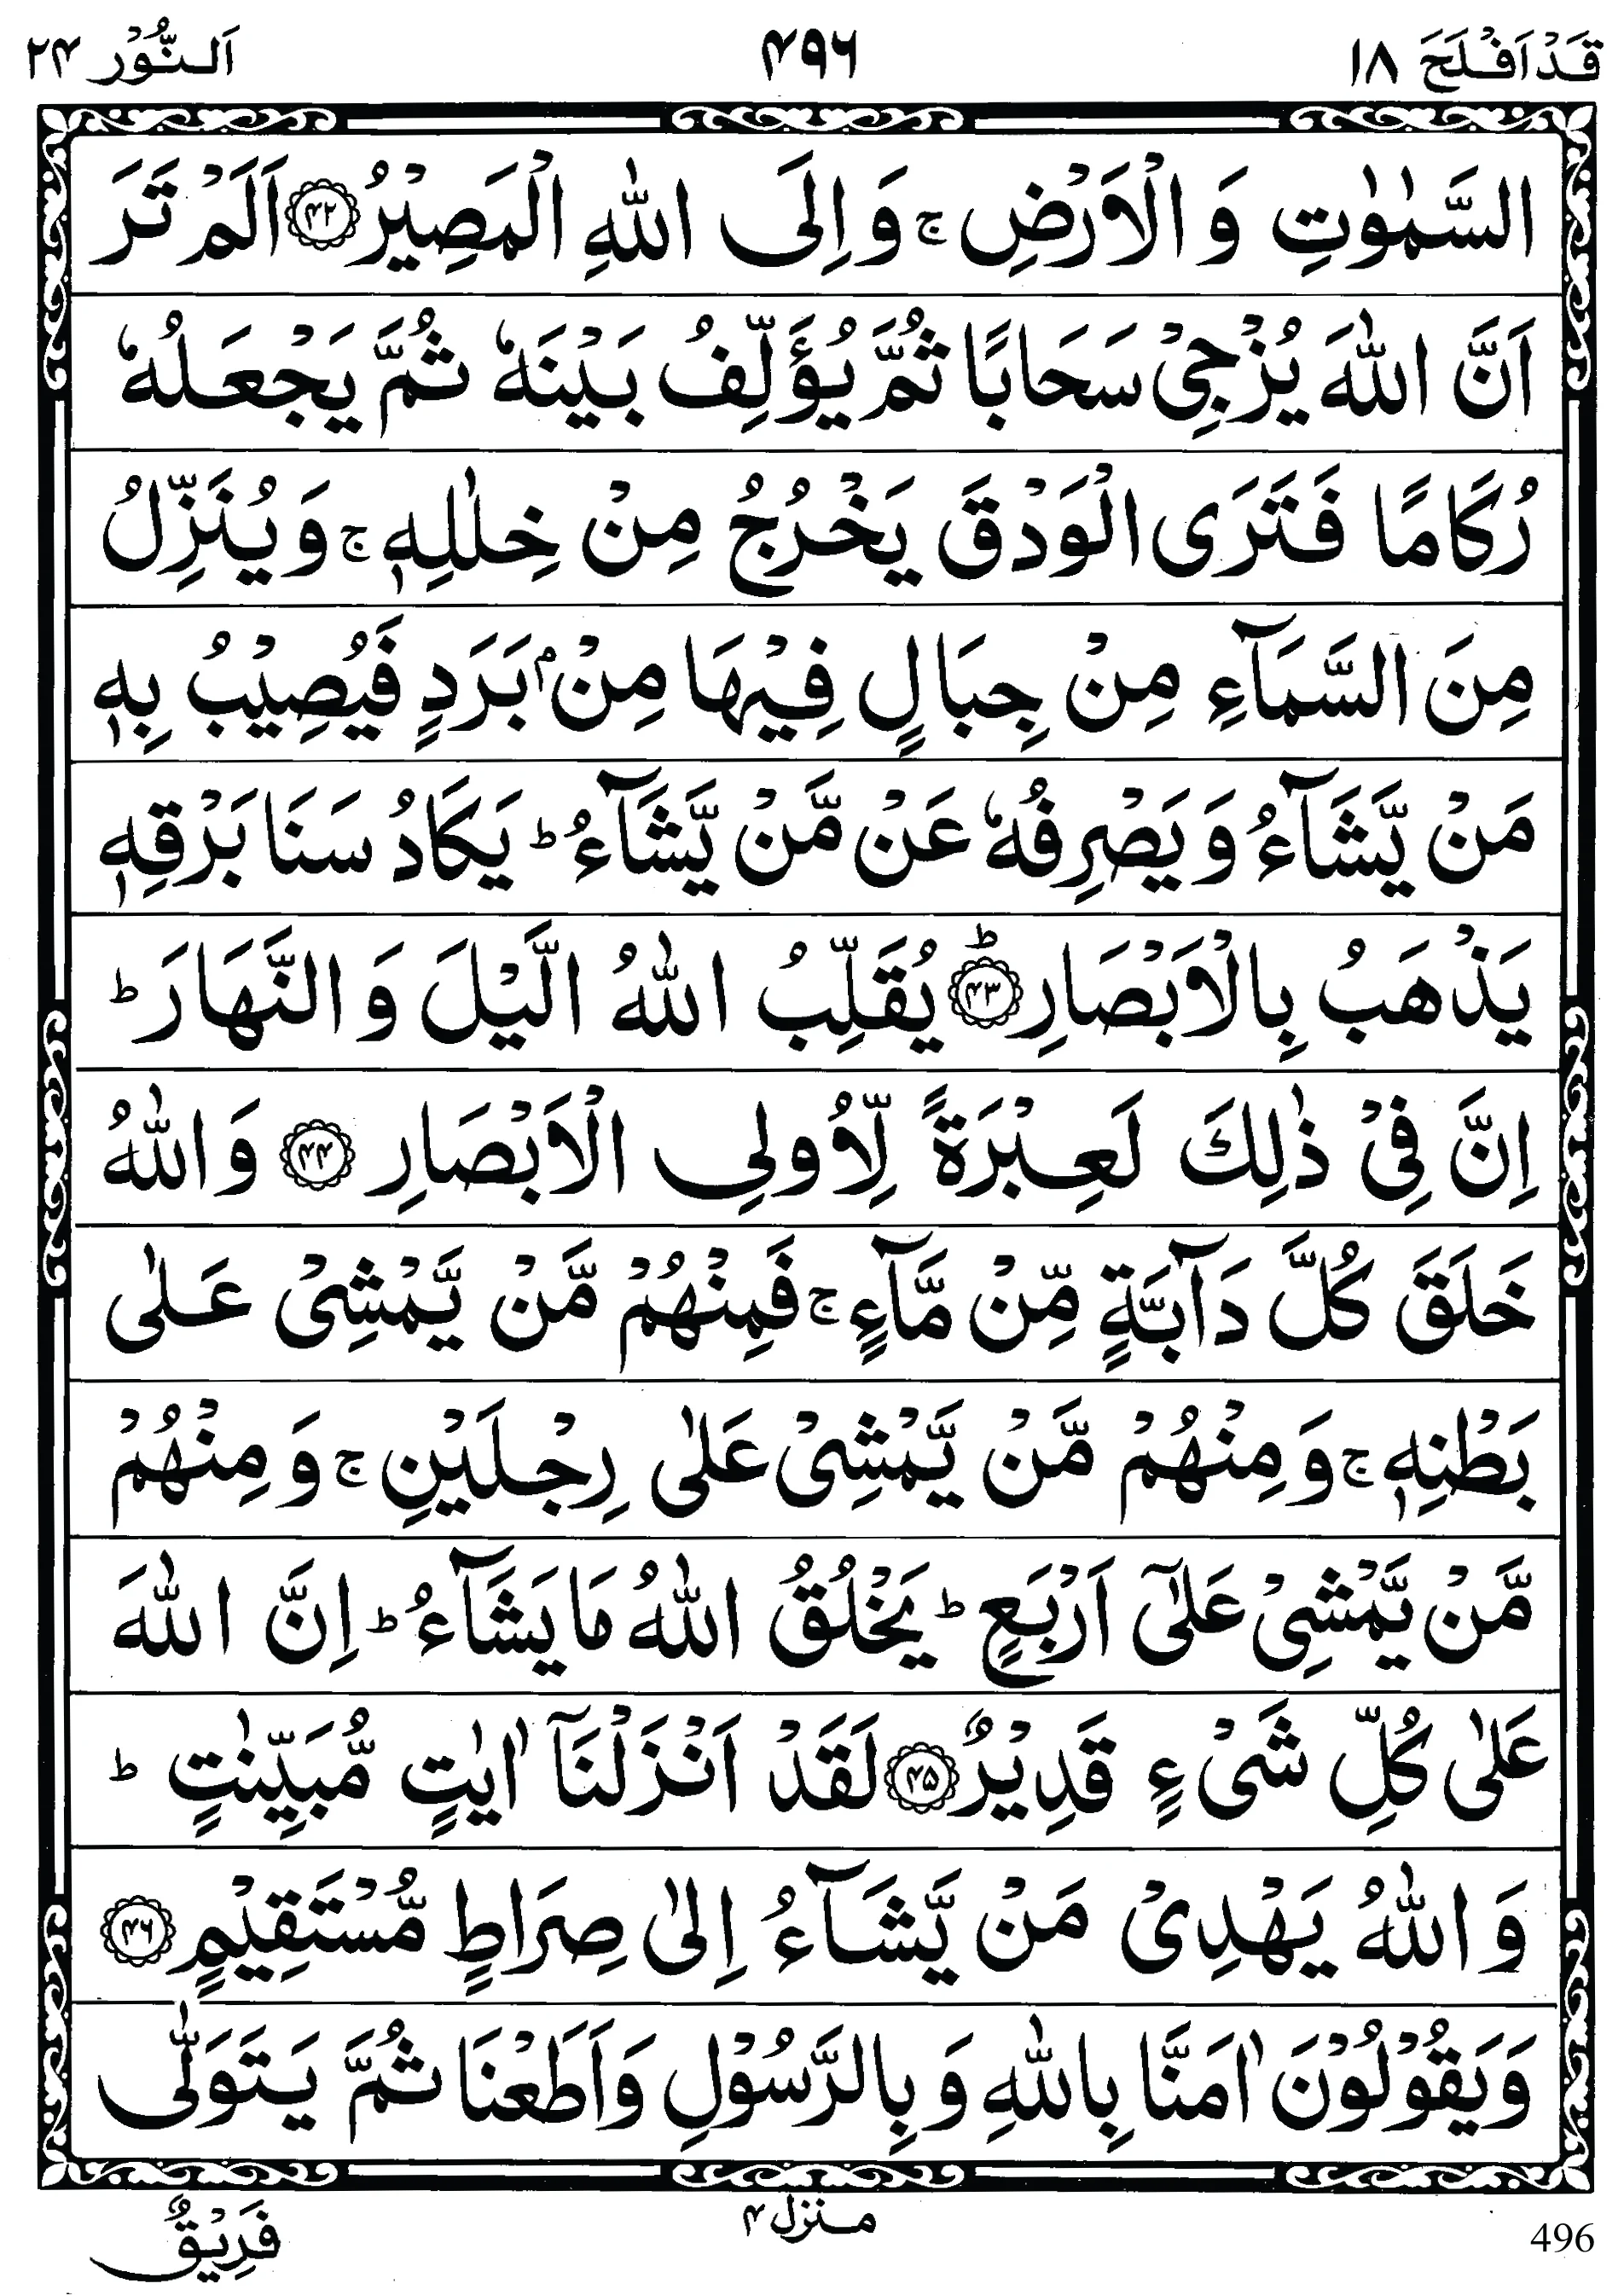 قَدْ اَفْلَحَ ١٨ ۴۹۶ اَلنُّوْر ٢۴
السَّمٰوٰتِ وَ الْاَرْضِ ۚ وَ اِلَى اللّٰهِ الْمَصِيْرُ ﴿۴۲﴾ اَلَمْ تَرَ
اَنَّ اللّٰهَ يُزْجِىْ سَحَابًا ثُمَّ يُؤَلِّفُ بَيْنَهٗ ثُمَّ يَجْعَلُهٗ
رُكَامًا فَتَرَى الْوَدْقَ يَخْرُجُ مِنْ خِلٰلِهٖ ۚ وَ يُنَزِّلُ
مِنَ السَّمَآءِ مِنْ جِبَالٍ فِيْهَا مِنْۢ بَرَدٍ فَيُصِيْبُ بِهٖ
مَنْ يَّشَآءُ وَ يَصْرِفُهٗ عَنْ مَّنْ يَّشَآءُ ؕ يَكَادُ سَنَا بَرْقِهٖ
يَذْهَبُ بِالْاَبْصَارِ ؕ ﴿۴۳﴾ يُقَلِّبُ اللّٰهُ الَّيْلَ وَ النَّهَارَ ؕ
اِنَّ فِىْ ذٰلِكَ لَعِبْرَةً لِّاُولِى الْاَبْصَارِ ﴿۴۴﴾ وَ اللّٰهُ
خَلَقَ كُلَّ دَآبَّةٍ مِّنْ مَّآءٍ ۚ فَمِنْهُمْ مَّنْ يَّمْشِىْ عَلٰى
بَطْنِهٖ ۚ وَ مِنْهُمْ مَّنْ يَّمْشِىْ عَلٰى رِجْلَيْنِ ۚ وَ مِنْهُمْ
مَّنْ يَّمْشِىْ عَلٰٓى اَرْبَعٍ ؕ يَخْلُقُ اللّٰهُ مَا يَشَآءُ ؕ اِنَّ اللّٰهَ
عَلٰى كُلِّ شَىْءٍ قَدِيْرٌ ﴿۴۵﴾ لَقَدْ اَنْزَلْنَآ اٰيٰتٍ مُّبَيِّنٰتٍ ؕ
وَ اللّٰهُ يَهْدِىْ مَنْ يَّشَآءُ اِلٰى صِرَاطٍ مُّسْتَقِيْمٍ ﴿۴۶﴾
وَ يَقُوْلُوْنَ اٰمَنَّا بِاللّٰهِ وَ بِالرَّسُوْلِ وَ اَطَعْنَا ثُمَّ يَتَوَلّٰى
منزل ۴
فَرِيْقٌ
496